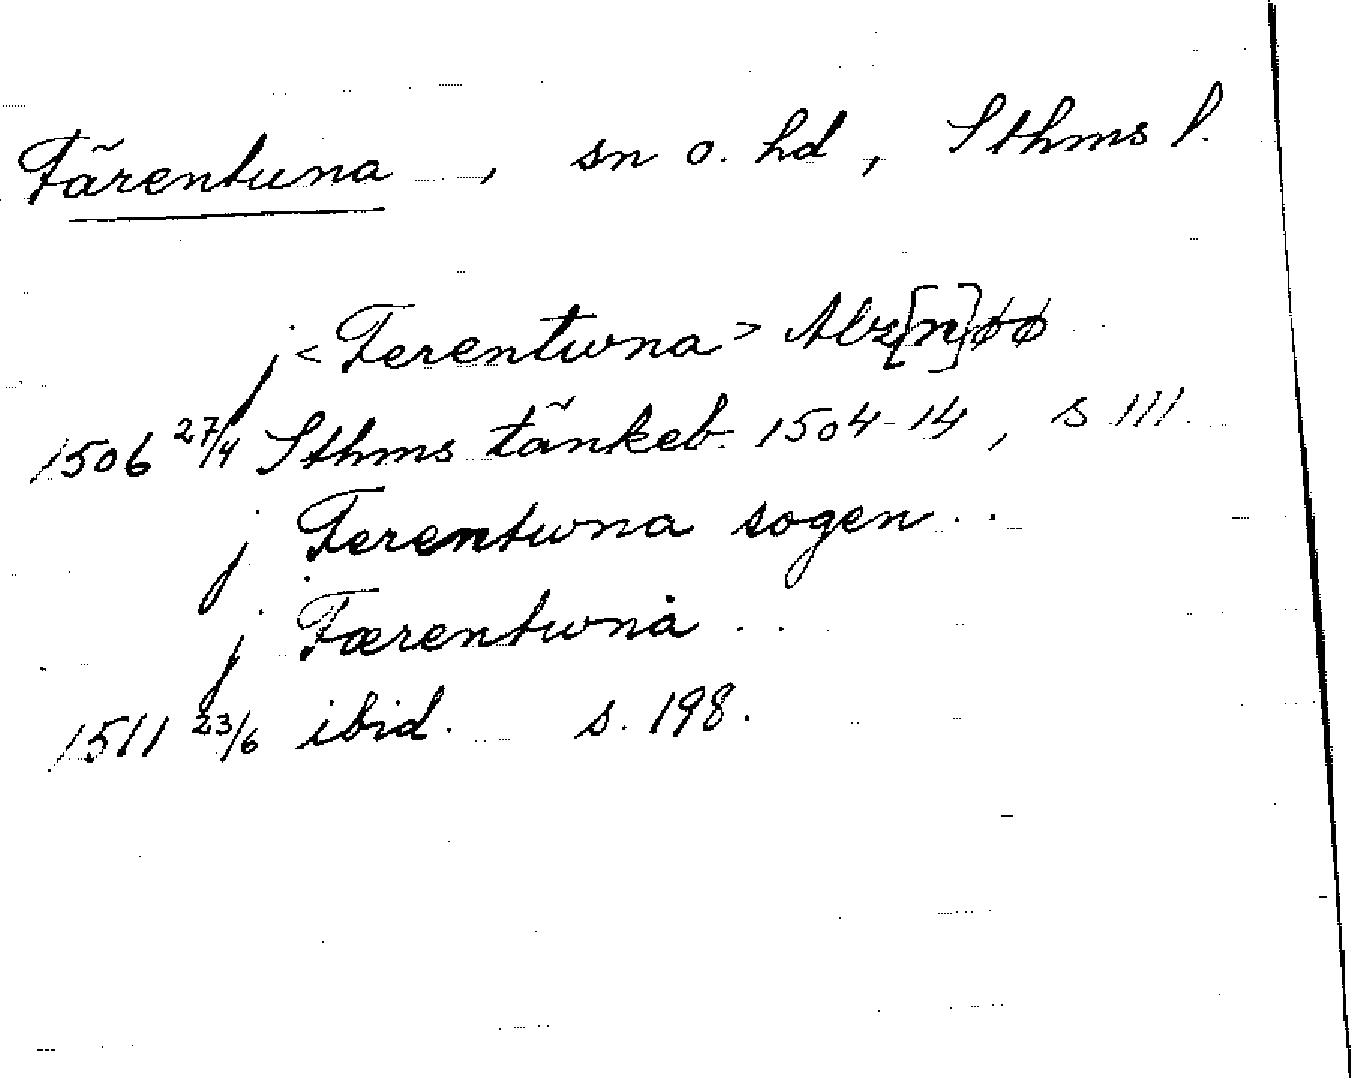 Färentuna, sn o. hd, Sthms l.
j <Ferentwna>
1506 27/4 Sthms tänkeb. 1504-14, s 111.
j Ferentwna sogen ..
j Færentwna ..
1511 23/6 ibid. s. 198.